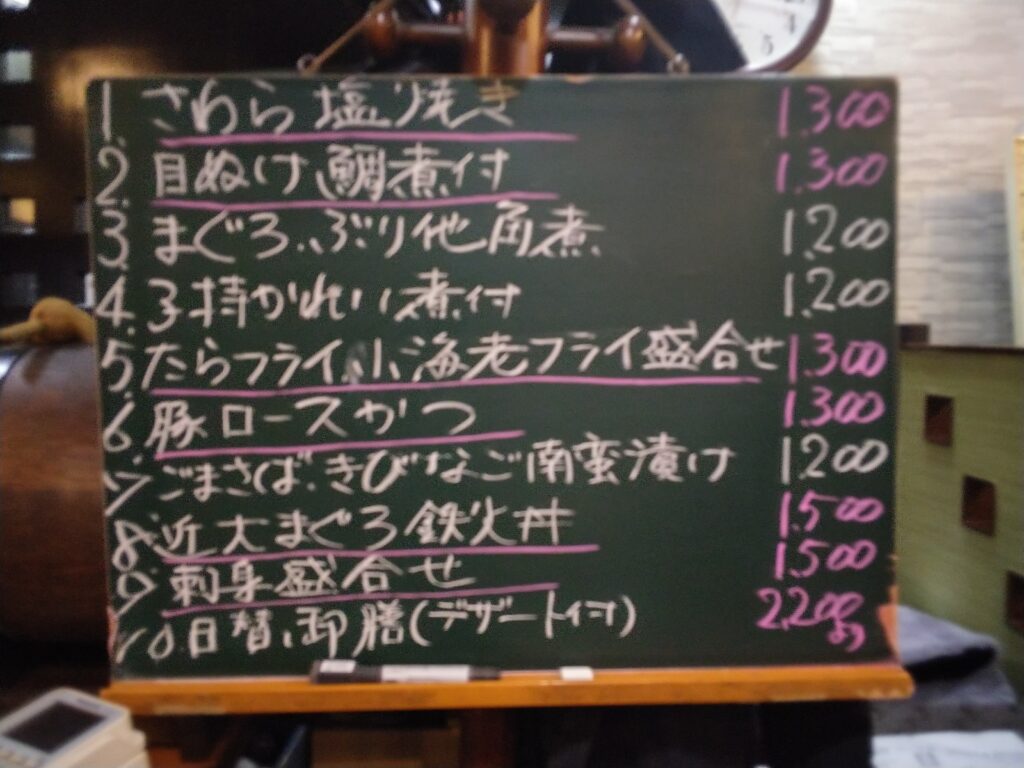 1. さわら塩り焼き 1.300
2. 目ぬけ鯛煮付 1.300
3. まぐろ、ぶり他角煮 1.200
4. 子持かれい煮付 1.200
5. たらフライ小海老フライ盛合せ 1.300
6. 豚ロースかつ 1.300
7. ごまさば、きびなご南蛮漬け 1.200
8. 近大まぐろ鉄火丼 1.500
9. 刺身盛合せ 1.500
10 日替御膳(デザート付) 2.200